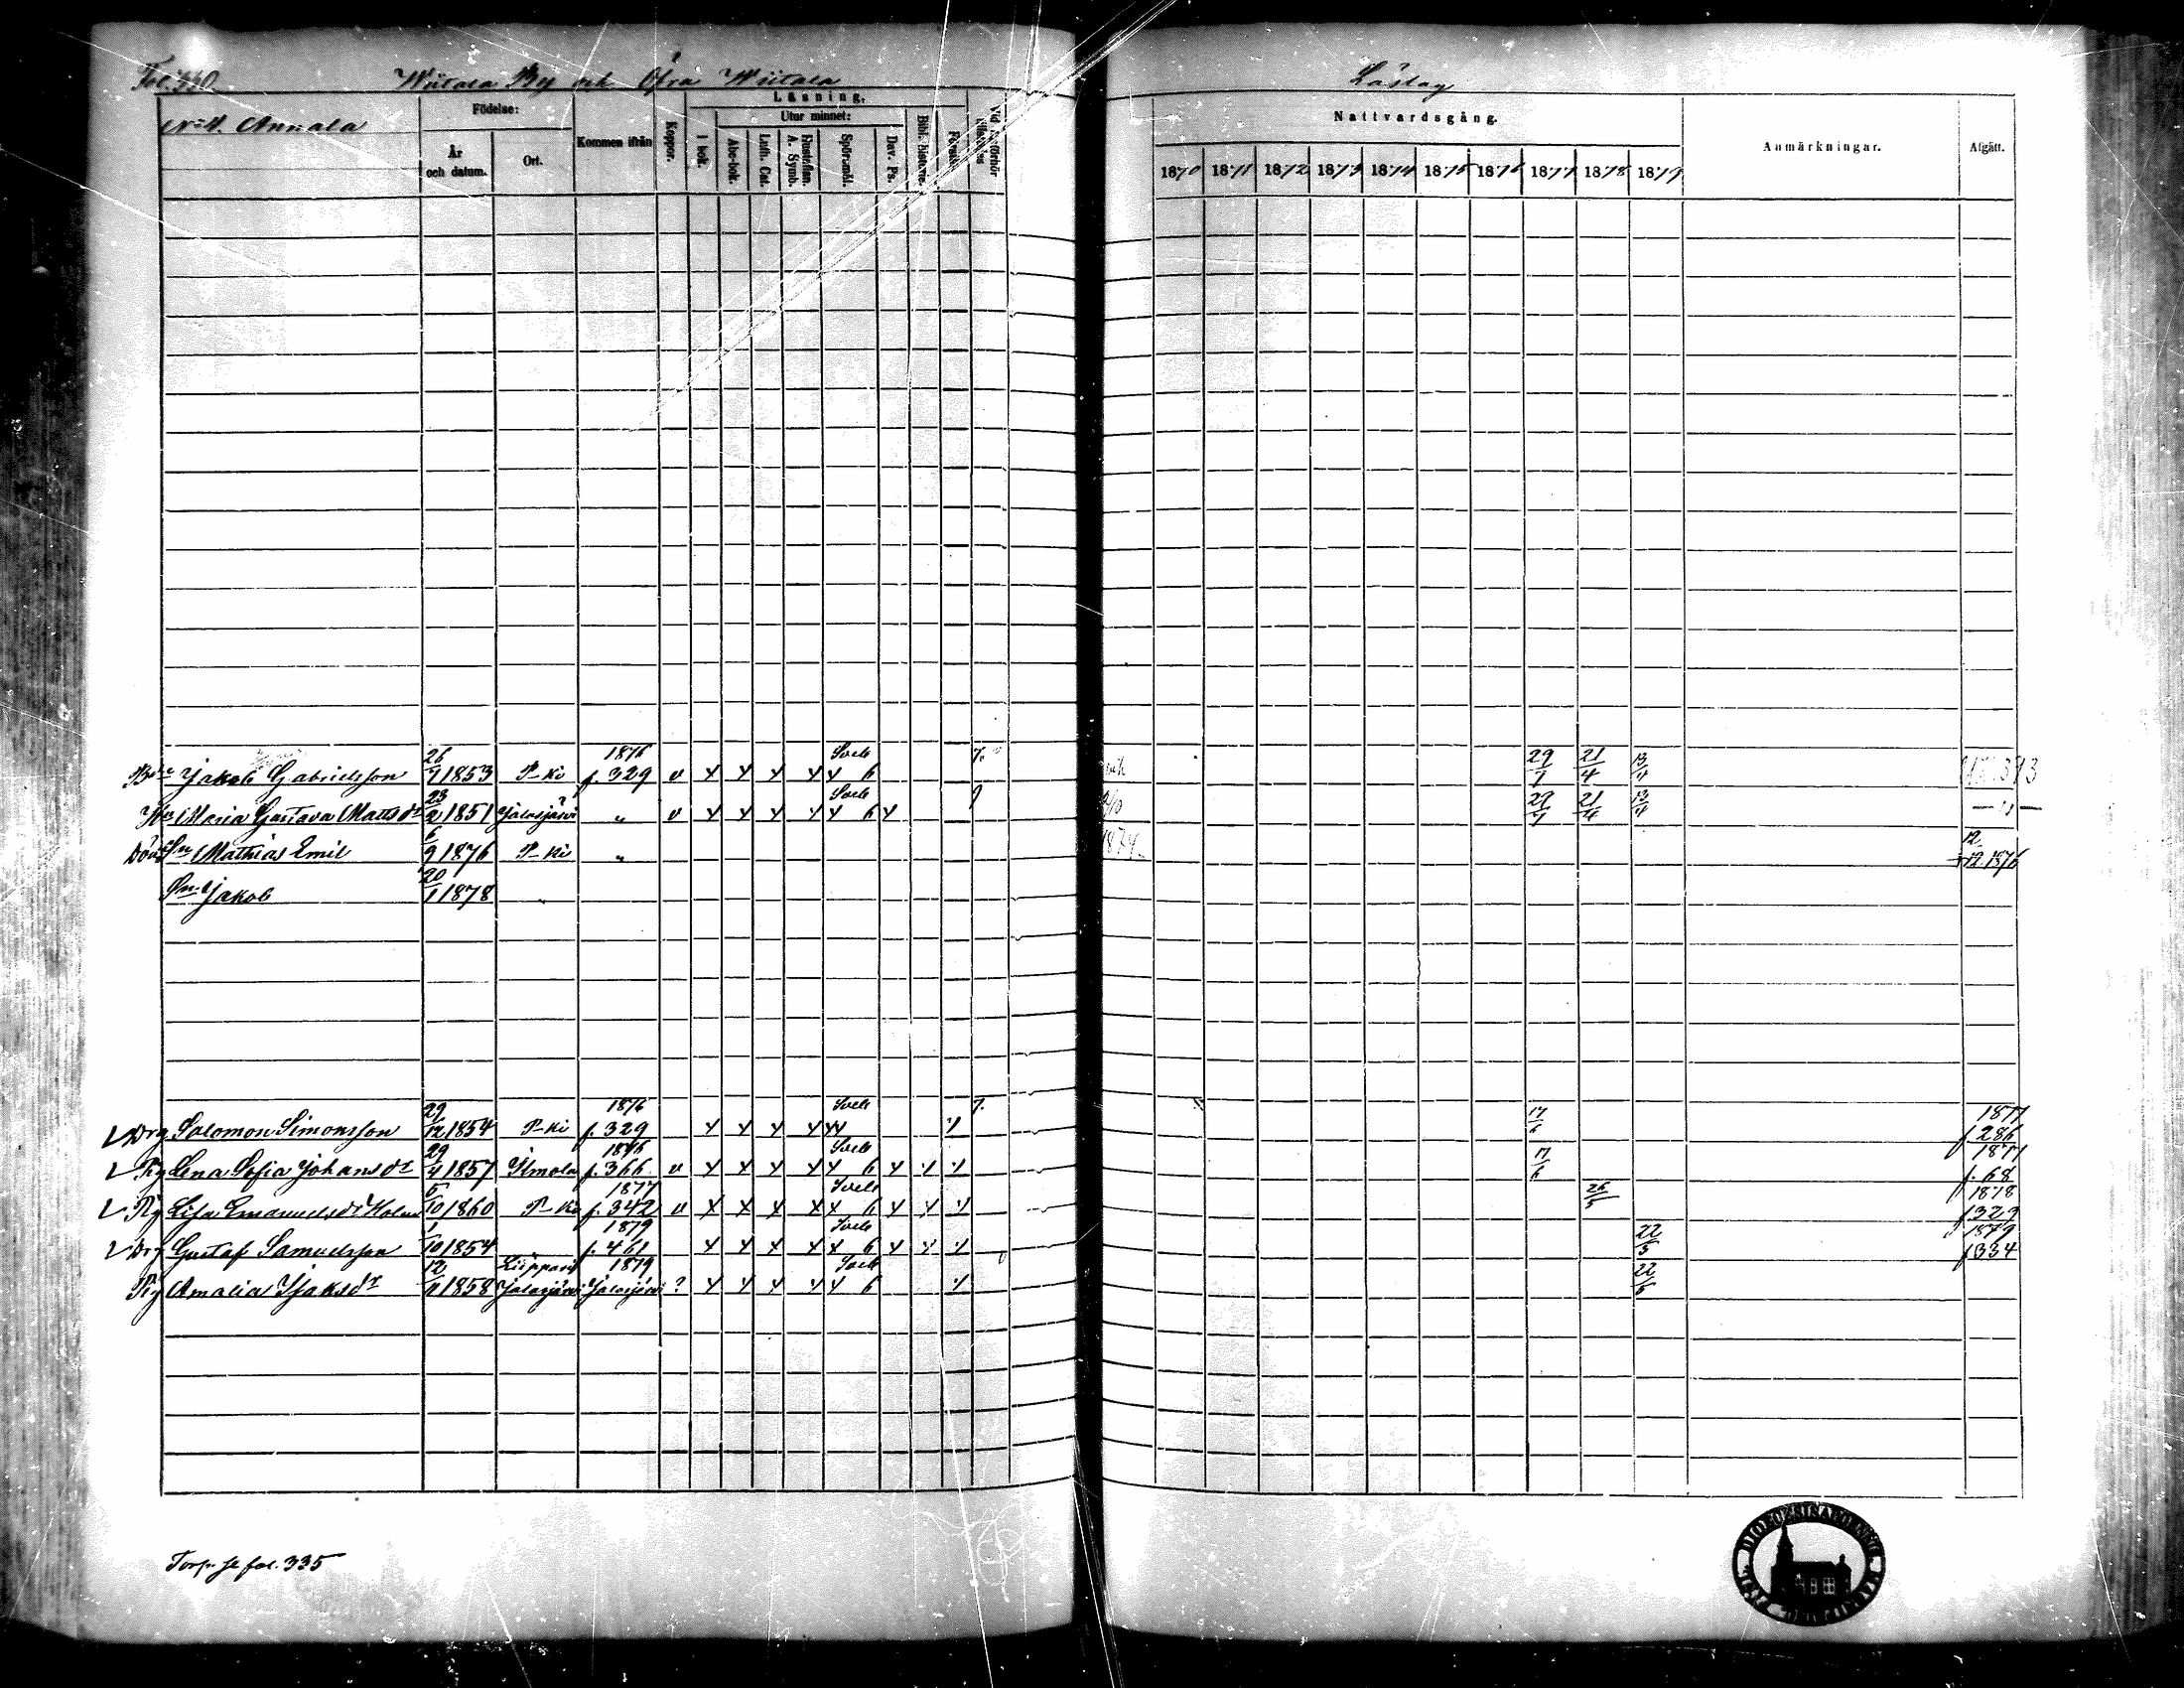 Fol. 330. Wiitala By och Öfra Wiitala Läslag
No 4. Annala
Födelse: År och datum. Ort. Kommen ifrån Koppor. Läsning. I bok. Utur minnet: Abc-bok. Luth. Cat. Hustaflan. A. Symb. Spörsmål. Dav. Ps. Bibl. historie.
Nattvardsgång. 1870 1871 1872 1873 1874 1875 1876 1877 1878 1879 Anmärkningar. Afgått.
Jakob Gabrielsson 26/7 1853 P-ki 1876 f. 329 v Sveb 6 29/7 21/4 13/4
Maria Gustava Mattsdr 23/2 1851 Jalasjärvi " v Sveb 6 29/7 21/4 13/4 — " —
Död Sn Mathias Emil 6/9 1876 P-ki " 12/12 1876
Sn Jakob 20/1 1878
Drg Salomon Simonsson 29/12 1854 P-ki 1876 f. 329 Sveb 17/6 1877 f 286
Pig Lena Sofia Johansdr 29/4 1857 Ilmola 1876 f. 366 v Sveb 6 17/6 1877 f. 68
Pig Lisa Emanuelsdr Holm 5/10 1860 P-ki 1877 f. 342 v Sveb 6 26/5 1878 f 329
Drg Gustaf Samuelsson 1/10 1854 1879 f. 461 Sveb 6 22/5 1879 f 334
Pig Amalia Isaksdr 12/11 1858 Jalasjärvi 1879 Jalasjärvi ? Sveb 6 22/5
Torp. se fol. 335